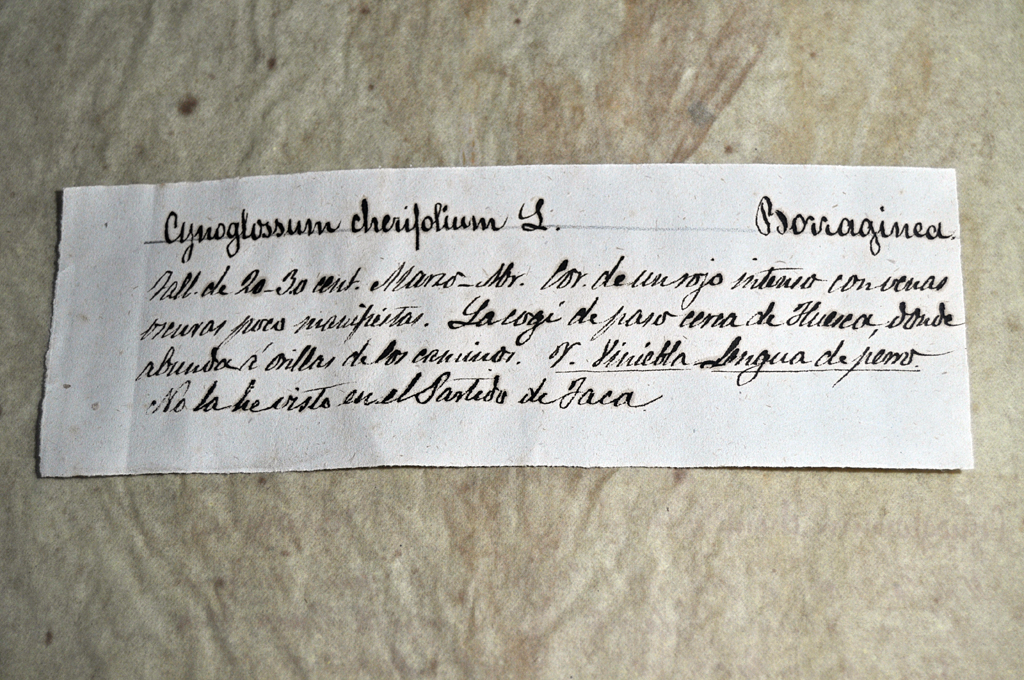 Cynoglossum cherifolium L. Borraginea.
Tall. de 20-30 cent. Marzo-Abr. Cor. de un rojo intenso con venas
oscuras poco manifiestas. La cogí de paso cerca de Huesca, donde
abunda á orillas de los caminos. V. Viniebla Lengua de perro.
No la he visto en el Partido de Jaca